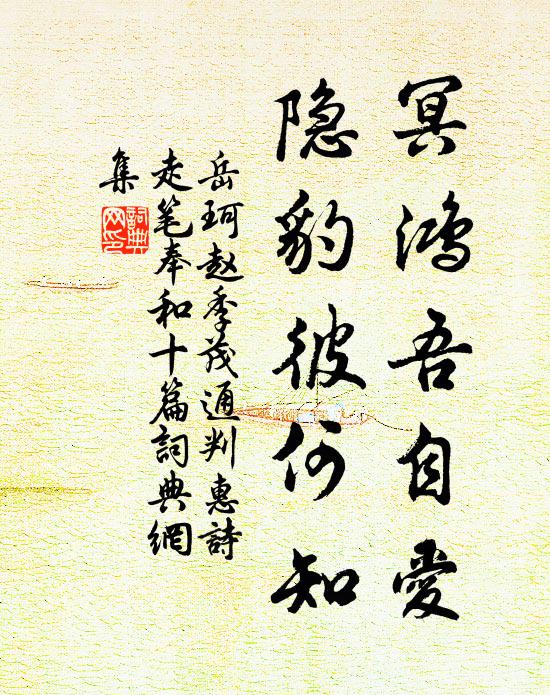 冥鸿吾自愛
隐豹彼何知
岳珂赵季茂通判惠詩
走笔奉和十篇詞典網
集
詞典
网印